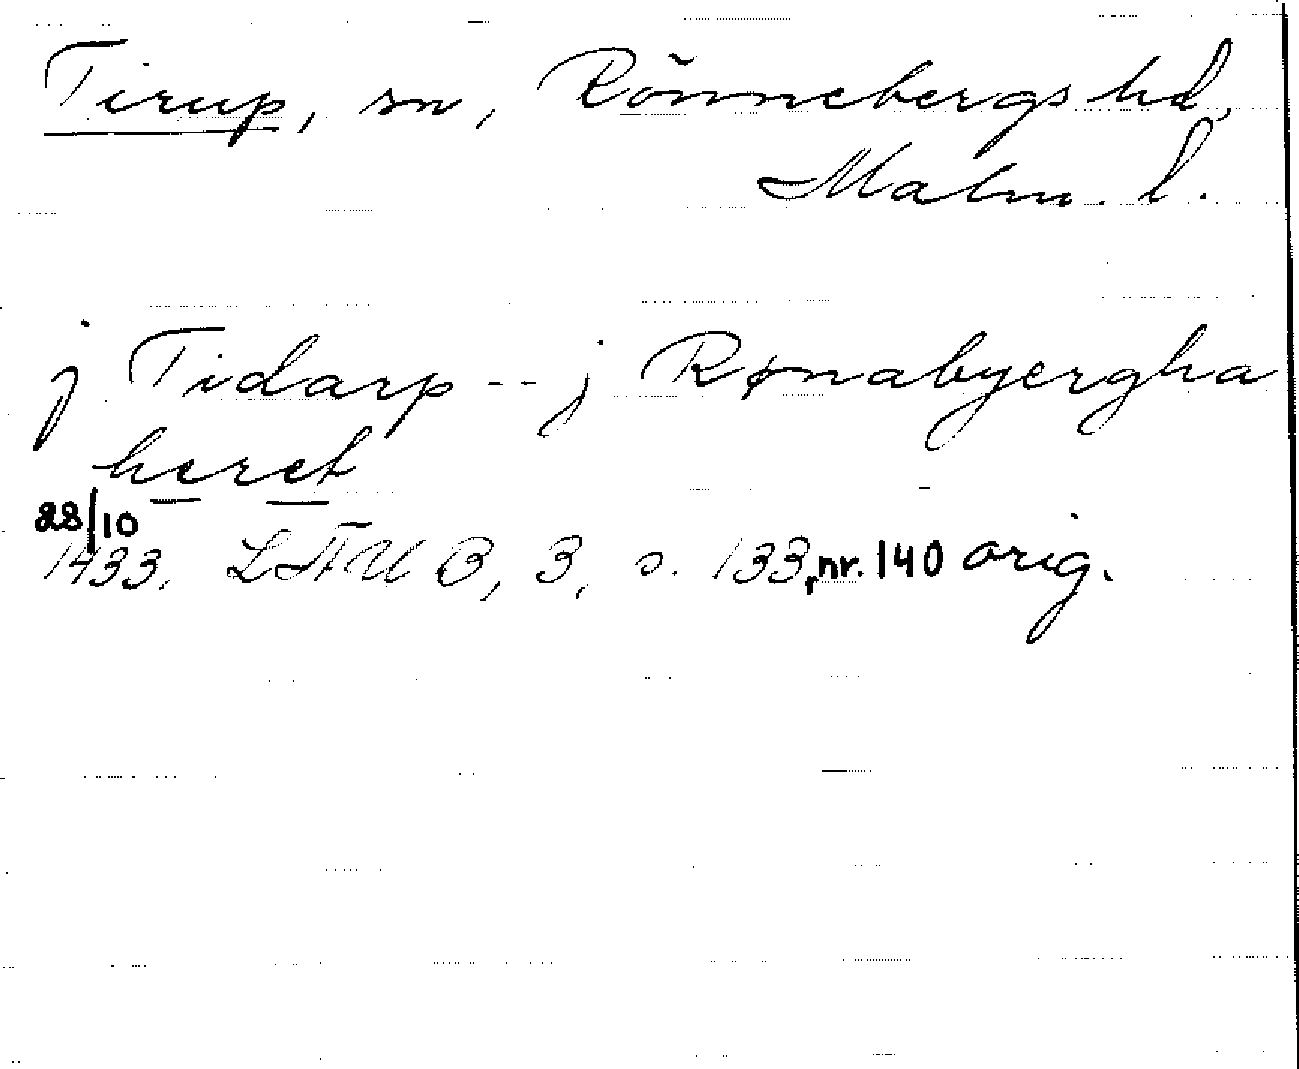 Tirup, sn, Rönnebergs hd,
Malm. l.
j Tidarp -- j Rønabyergha
heret
28/10
1433. LÄUB, 3, s. 133, nr. 140 orig.